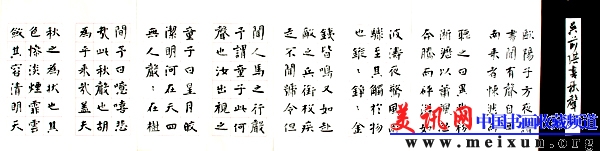 歐陽子方夜讀
書聞有聲自西
南來者悚然而
聽之曰異哉初
淅瀝以蕭颯忽
奔騰而砰湃如
波濤夜驚風雨
驟至其觸於物
也鏦〻錚〻金
鐵皆鳴又如赴
敵之兵銜枚疾
走不聞號令但
聞人馬之行聲
予謂童子此何
聲也汝出視之
童子曰星月皎
潔明河在天四
無人聲〻在樹
間予曰噫嘻悲
哉此秋聲也胡
為乎來哉蓋夫
秋之為狀也其
色慘淡煙霏雲
斂其容清明天
美讯网 中国书画收藏频道
www.meixun.net/